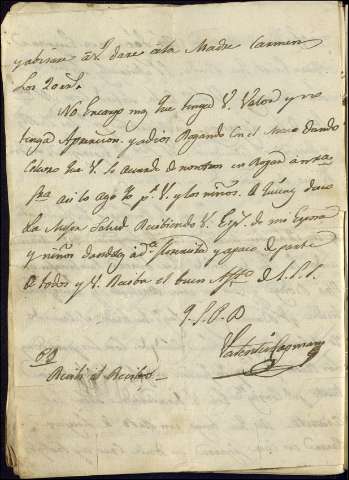 y abisare a V. dare a la Madre Carmen
los 20 rrs.
No Encargo mas que tenga V. Valor y no
tenga y adios Rogando con el Mazo dando
Como que V. se acuerde de nosotros en Rogar a
asi lo ago Yo p.r V. y los niños. a quienes deseo
la Mejor Salud Recibiendo V. Esp.s de mi Esposa
y niños a D.a y de parte
de todos y V. Reciba el buen Affto de S. S. S.
q. S. P. B
Valentin Capmany
P.D
Recibi el Recibo